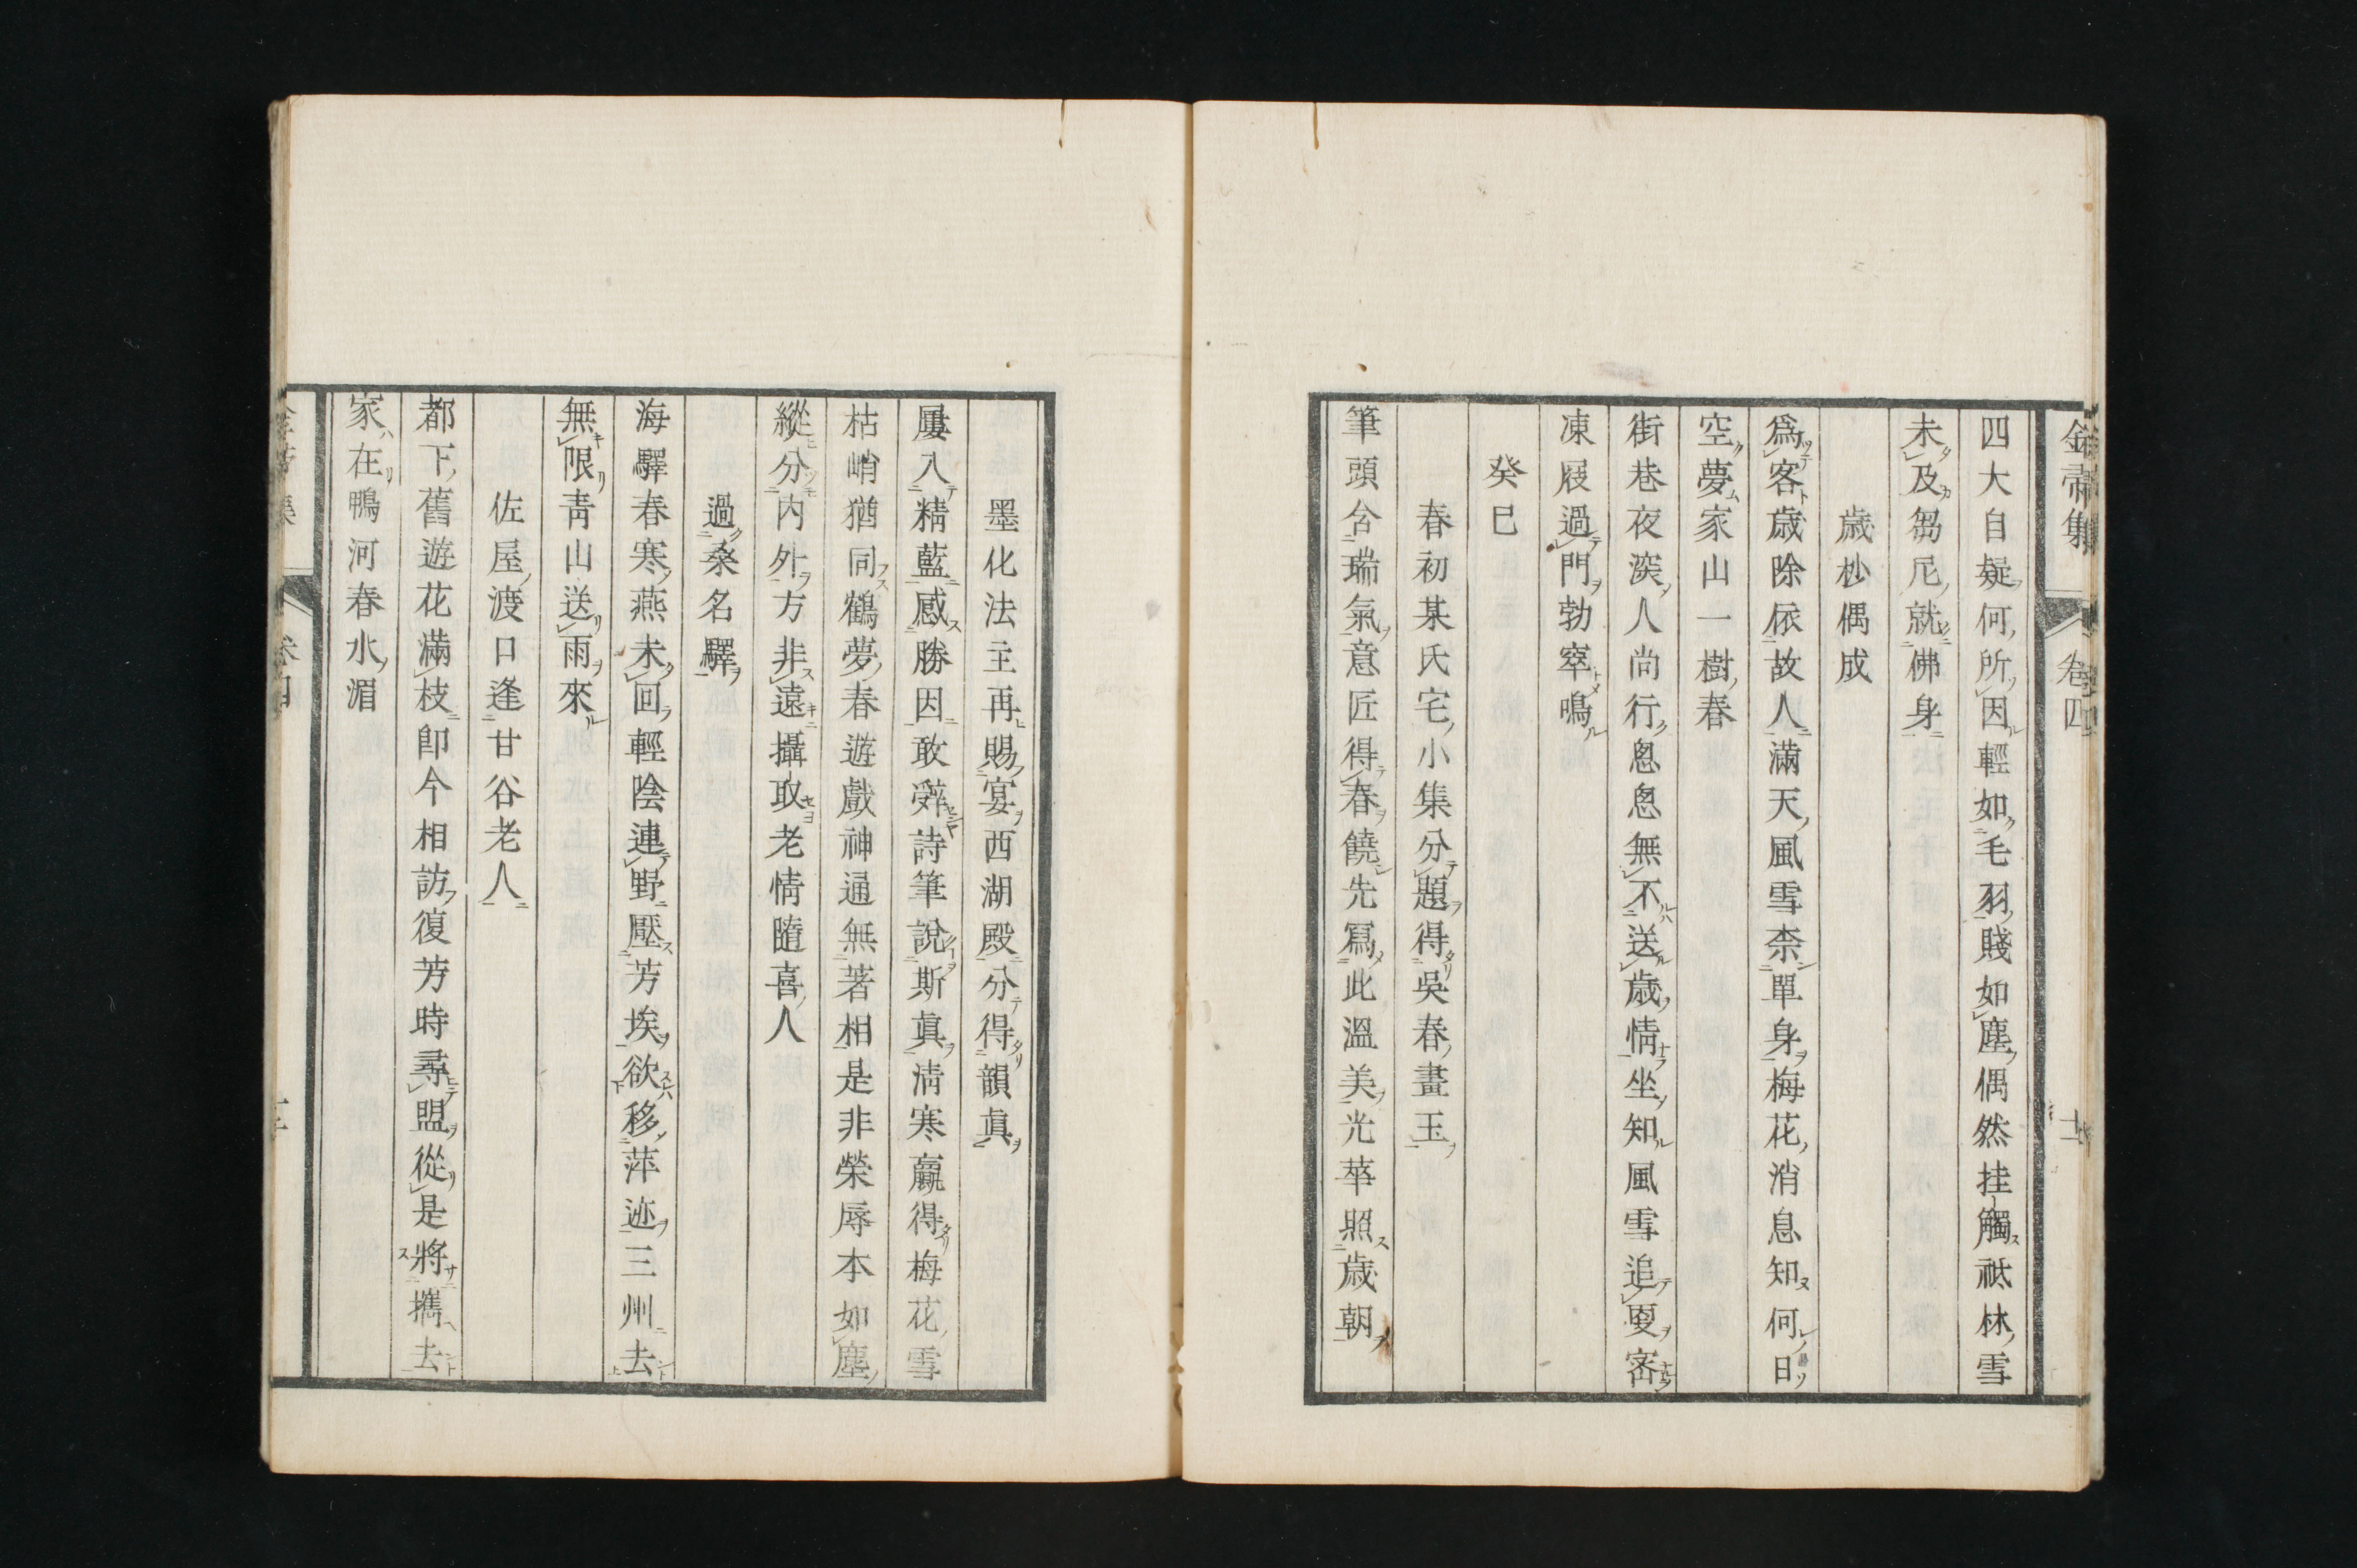 金帚集 卷四 十一
四大自疑何所因輕如毛羽賤如塵偶然挂觸祗林雪
未及芻尼就佛身
歲杪偶成
爲客歲除依故人滿天風雪柰單身梅花消息知何日
空夢家山一樹春
街巷夜深人尚行悤悤無不送歲情坐知風雪追更密
凍屐過門勃窣鳴
癸巳
春初某氏宅小集分題得吳春畫玉
筆頭含瑞氣意匠得春饒先寫此溫美光華照歲朝
墨化法主再賜宴西湖殿分得韻眞
屢入精藍感勝因敢辭詩筆說斯眞淸寒贏得梅花雪
枯峭猶同鶴夢春遊戲神通無著相是非榮辱本如塵
縱分內外方非遠攝取老情隨喜人
過桑名驛
海驛春寒燕未回輕陰連野壓芳埃欲移萍迹三州去
無限靑山送雨來
佐屋渡口逢甘谷老人
都下舊遊花滿枝卽今相訪復芳時尋盟從是將攜去
家在鴨河春水湄